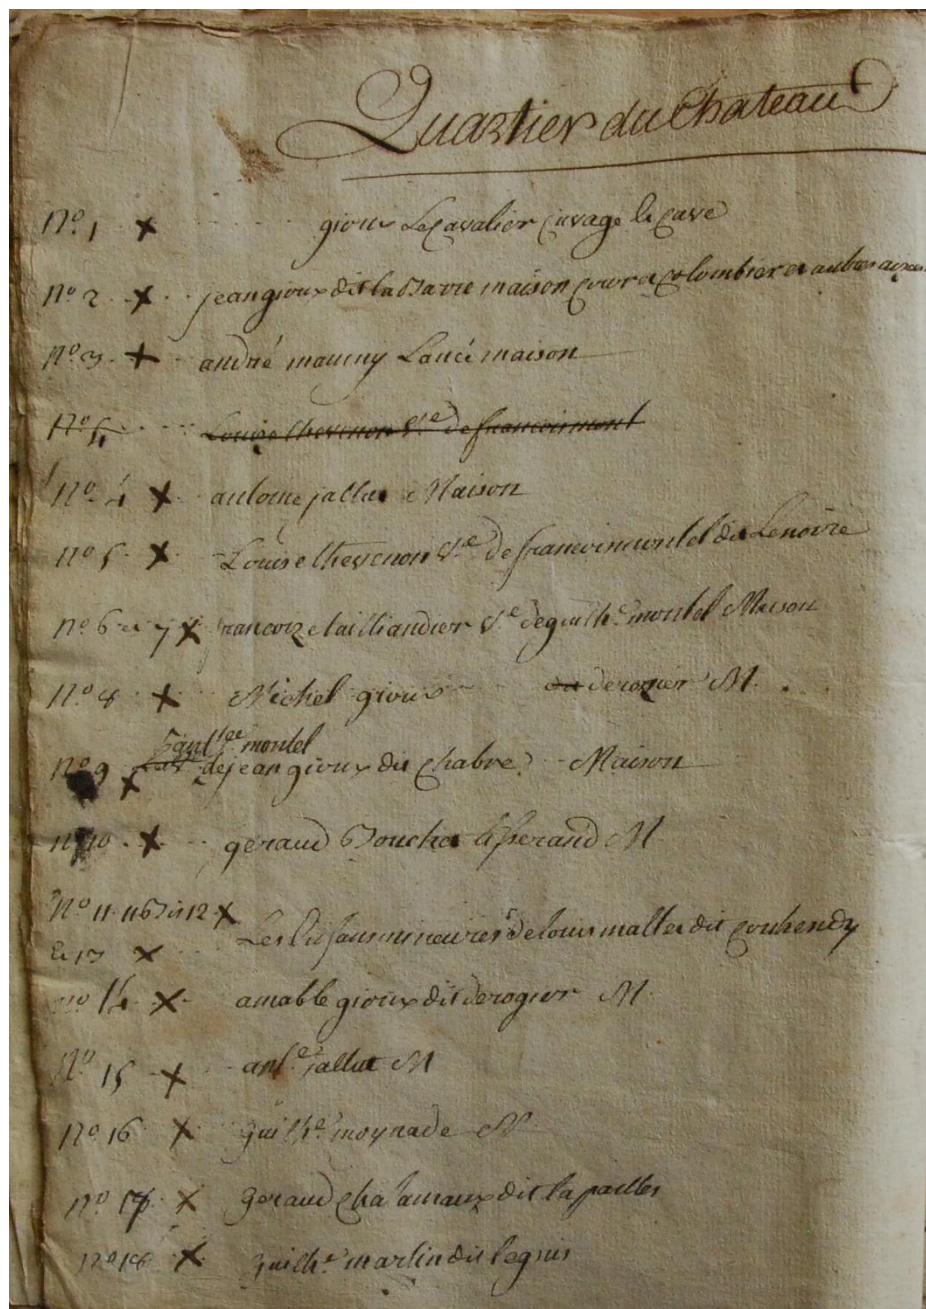 Quartier du Chateau
n.o 1 x gioux Le Cavalier Cuvage & cave
n.o 2 x jean gioux dit la Barre maison cour & colombier et autres
n.o 3 x andré mauny Lainé maison
n.o 4 Louise thevenon V.e de francois mont
n.o 4 x antoine jallut Maison
n.o 5 x Louise thevenon V.e de francois montel dit Lenoire
n.o 6 et 7 x francoize tailliandier V.e de guilh.e montel Maison
n.o 8 x Michel gioux dit derogier M.
montel
n.o 9 x de jean gioux dit chabre Maison
n.o 10 x geraud Bouchet M
N.o 11 11 Bis 12 x
et 13 x Les Enfans mineures de Louis mallet dit
n.o 14 x amable gioux dit derogier M
n.o 15 x ant.e jallut M
n.o 16 x guilh.e moynade M
n.o 17 x geraud chalamaux dit la pailles
n.o 18 x guilh.e martin dit le gris